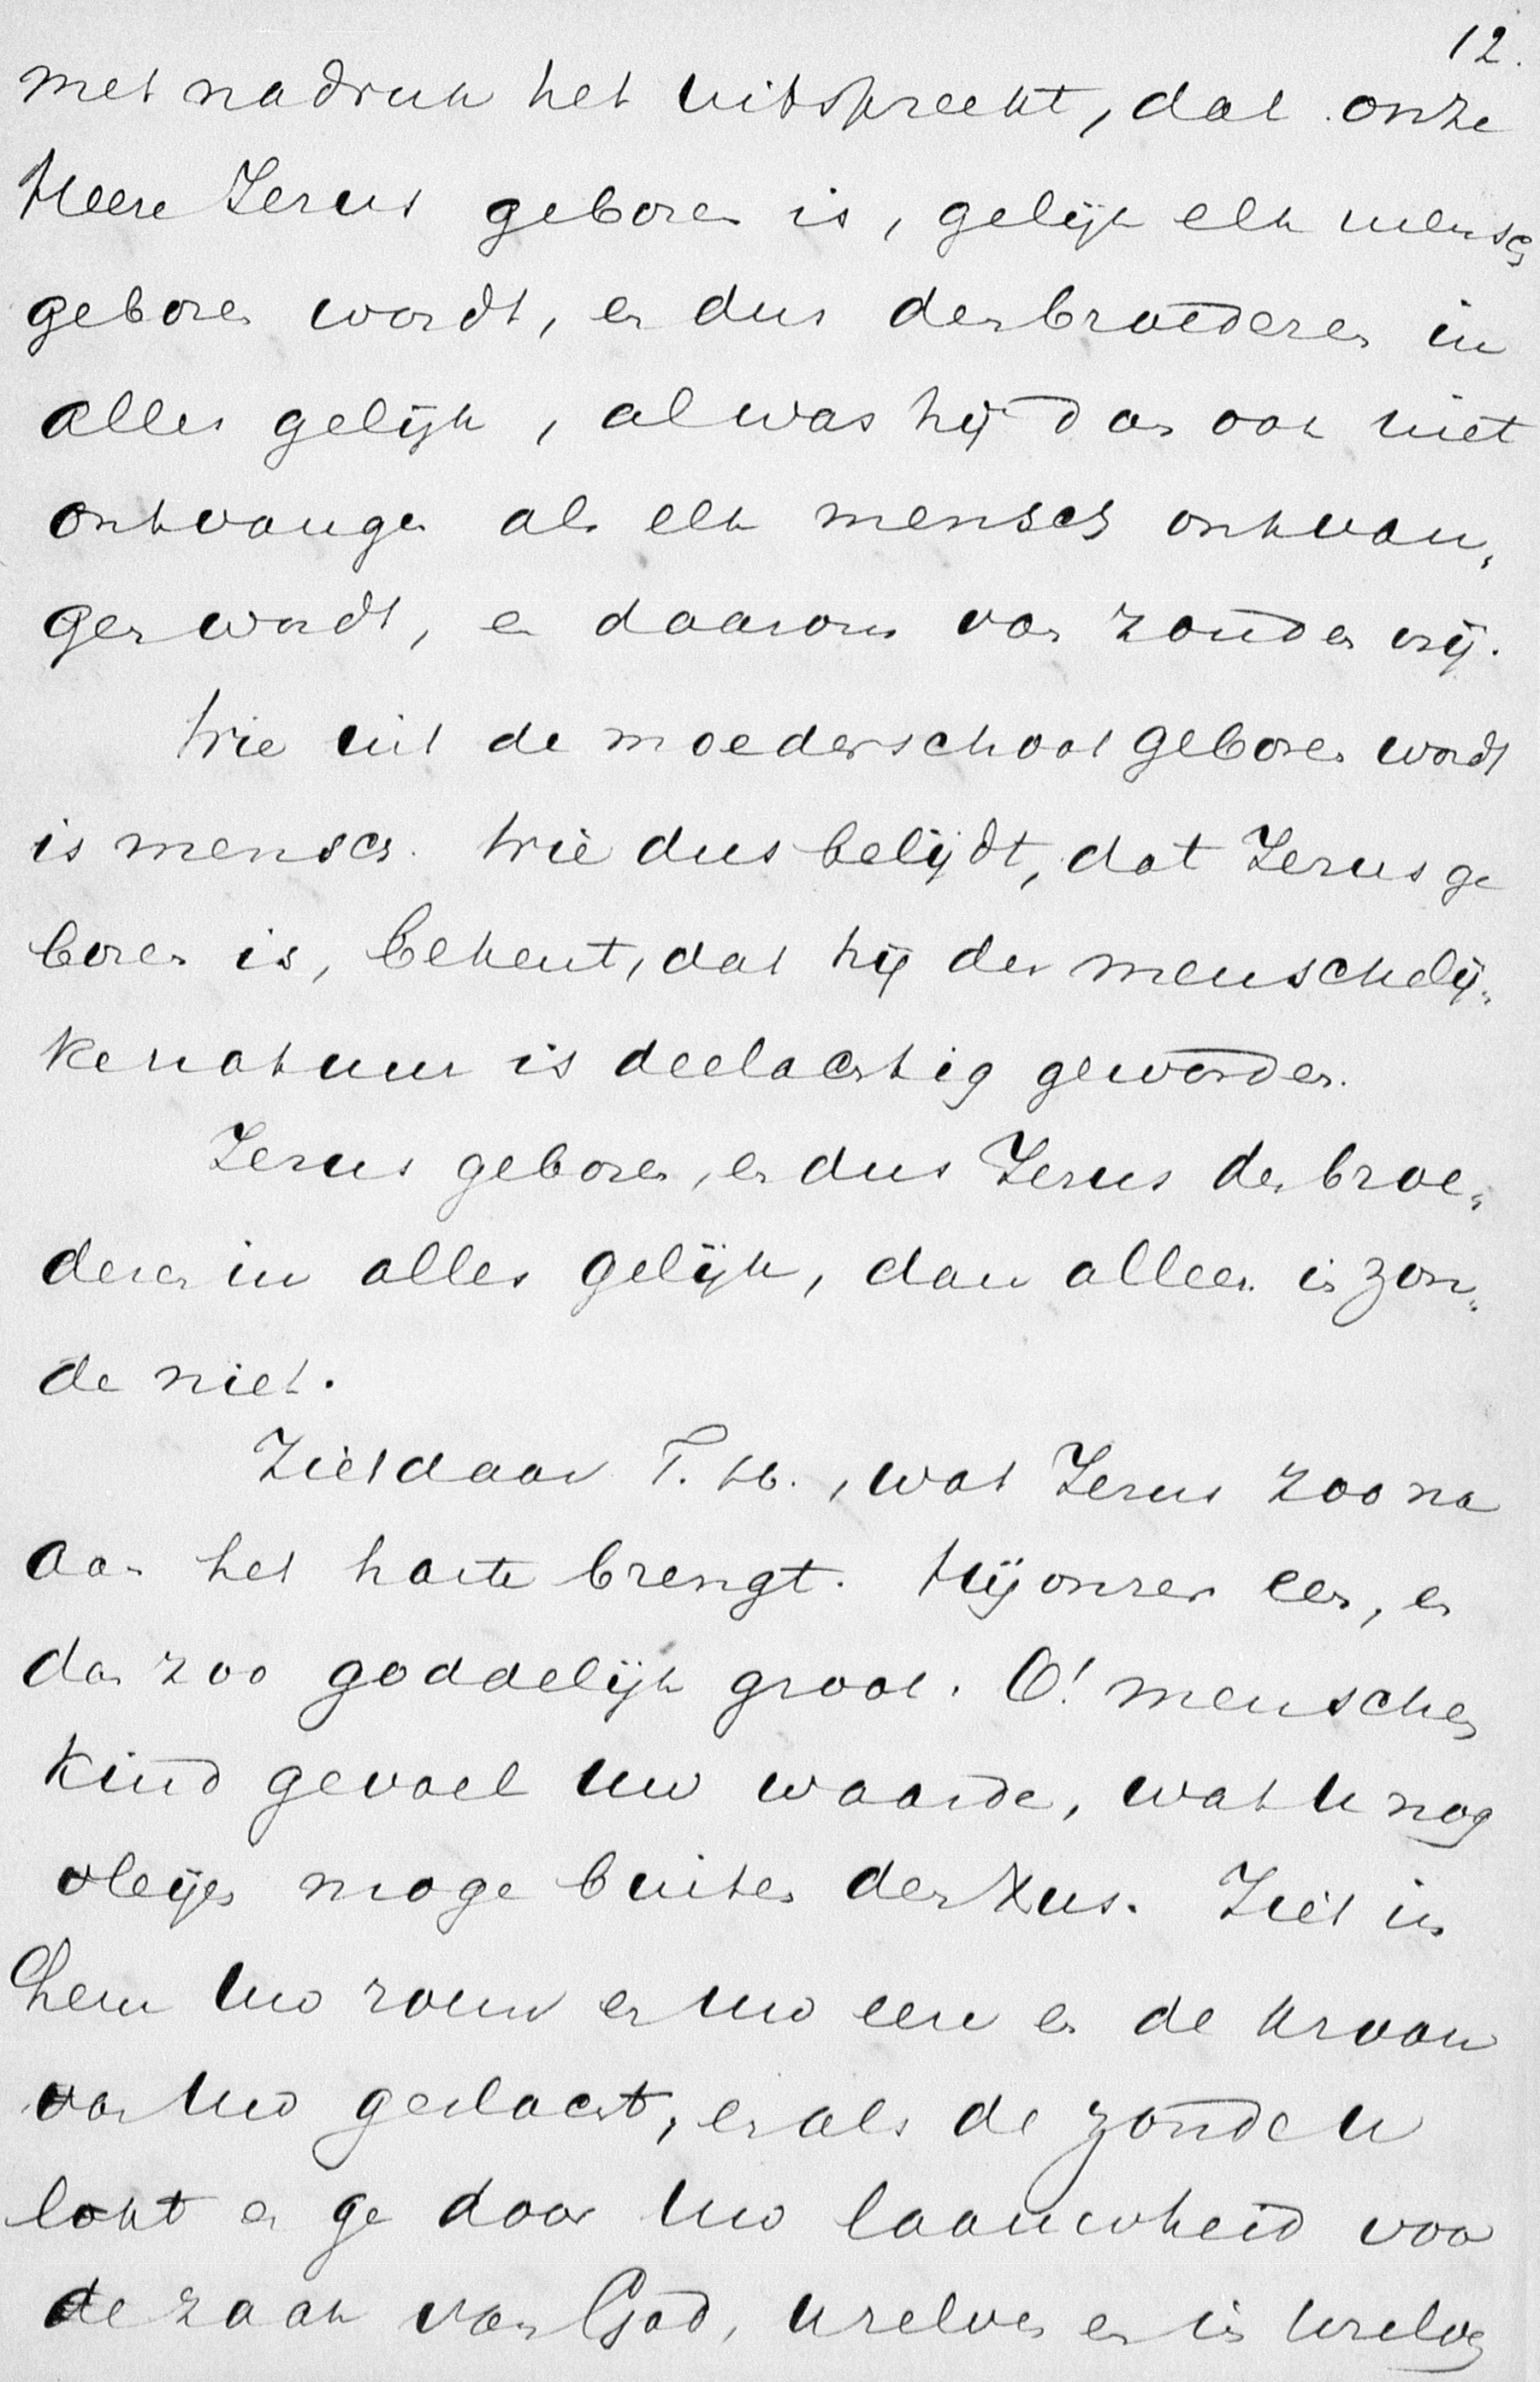 12.
met nadruk het uitspreekt, dat onze
Heere Jezus geboren is, gelijk elk mensch
geboren wordt, en dus den broederen in
alles gelijk, al was hij dan ook niet
ontvangen als elk mensch ontvan„
gen wordt, en daarom van zonden vrij.
Wie uit de moederschoot geboren wordt
is mensch. Wie dus belijdt, dat Jezus ge
boren is, bekent, dat hij der menschelij„
ke natuur is deelachtig geworden.
Jezus geboren, en dus Jezus den broe„
deren in alles gelijk, dan alleen in zon„
de niet.
Ziet daar T. H., wat Jezus zoo na
aan het harte brengt. Hij onzer een, en
dan zoo goddelijk groot. O! menschen
kind gevoel uw waarde, wat u nog
vleijen moge buiten den Xus. Ziet in
hem uw roem en uw eer en de kroon
van uw geslacht, en als de zonde u
lokt en ge door uw laauwheid voor
de zaak van God, uzelven en in uzelven